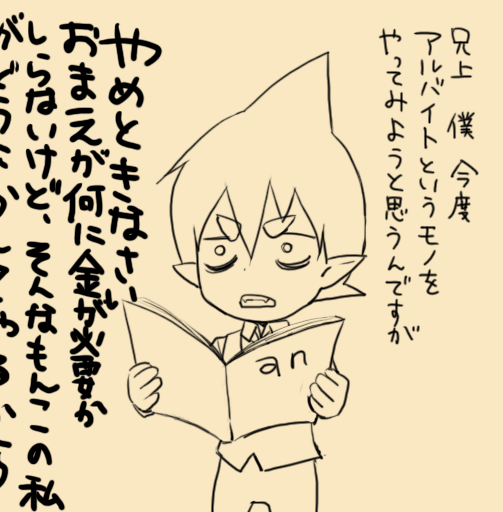 兄上 僕 今度
アルバイトというモノを
やってみようと思うんですが
an
やめときなさい
おまえが何に金が必要か
しらないけど、そんなもんこの私
がどうなかしてやるから